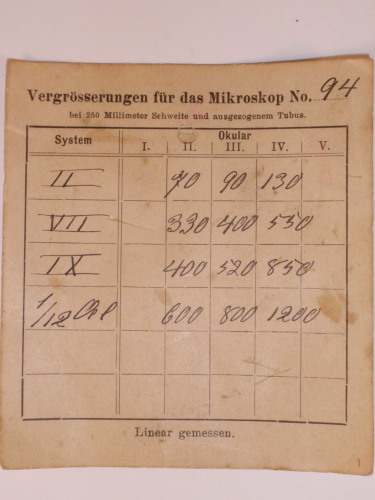 Vergrösserungen für das Mikroskop No. 94
bei 250 Millimeter Sehweite und ausgezogenem Tubus.
System Okular
I. II. III. IV. V.
II 70 90 130
VII 330 400 550
IX 400 520 850
1/12 Oel 600 800 1200
Linear gemessen.